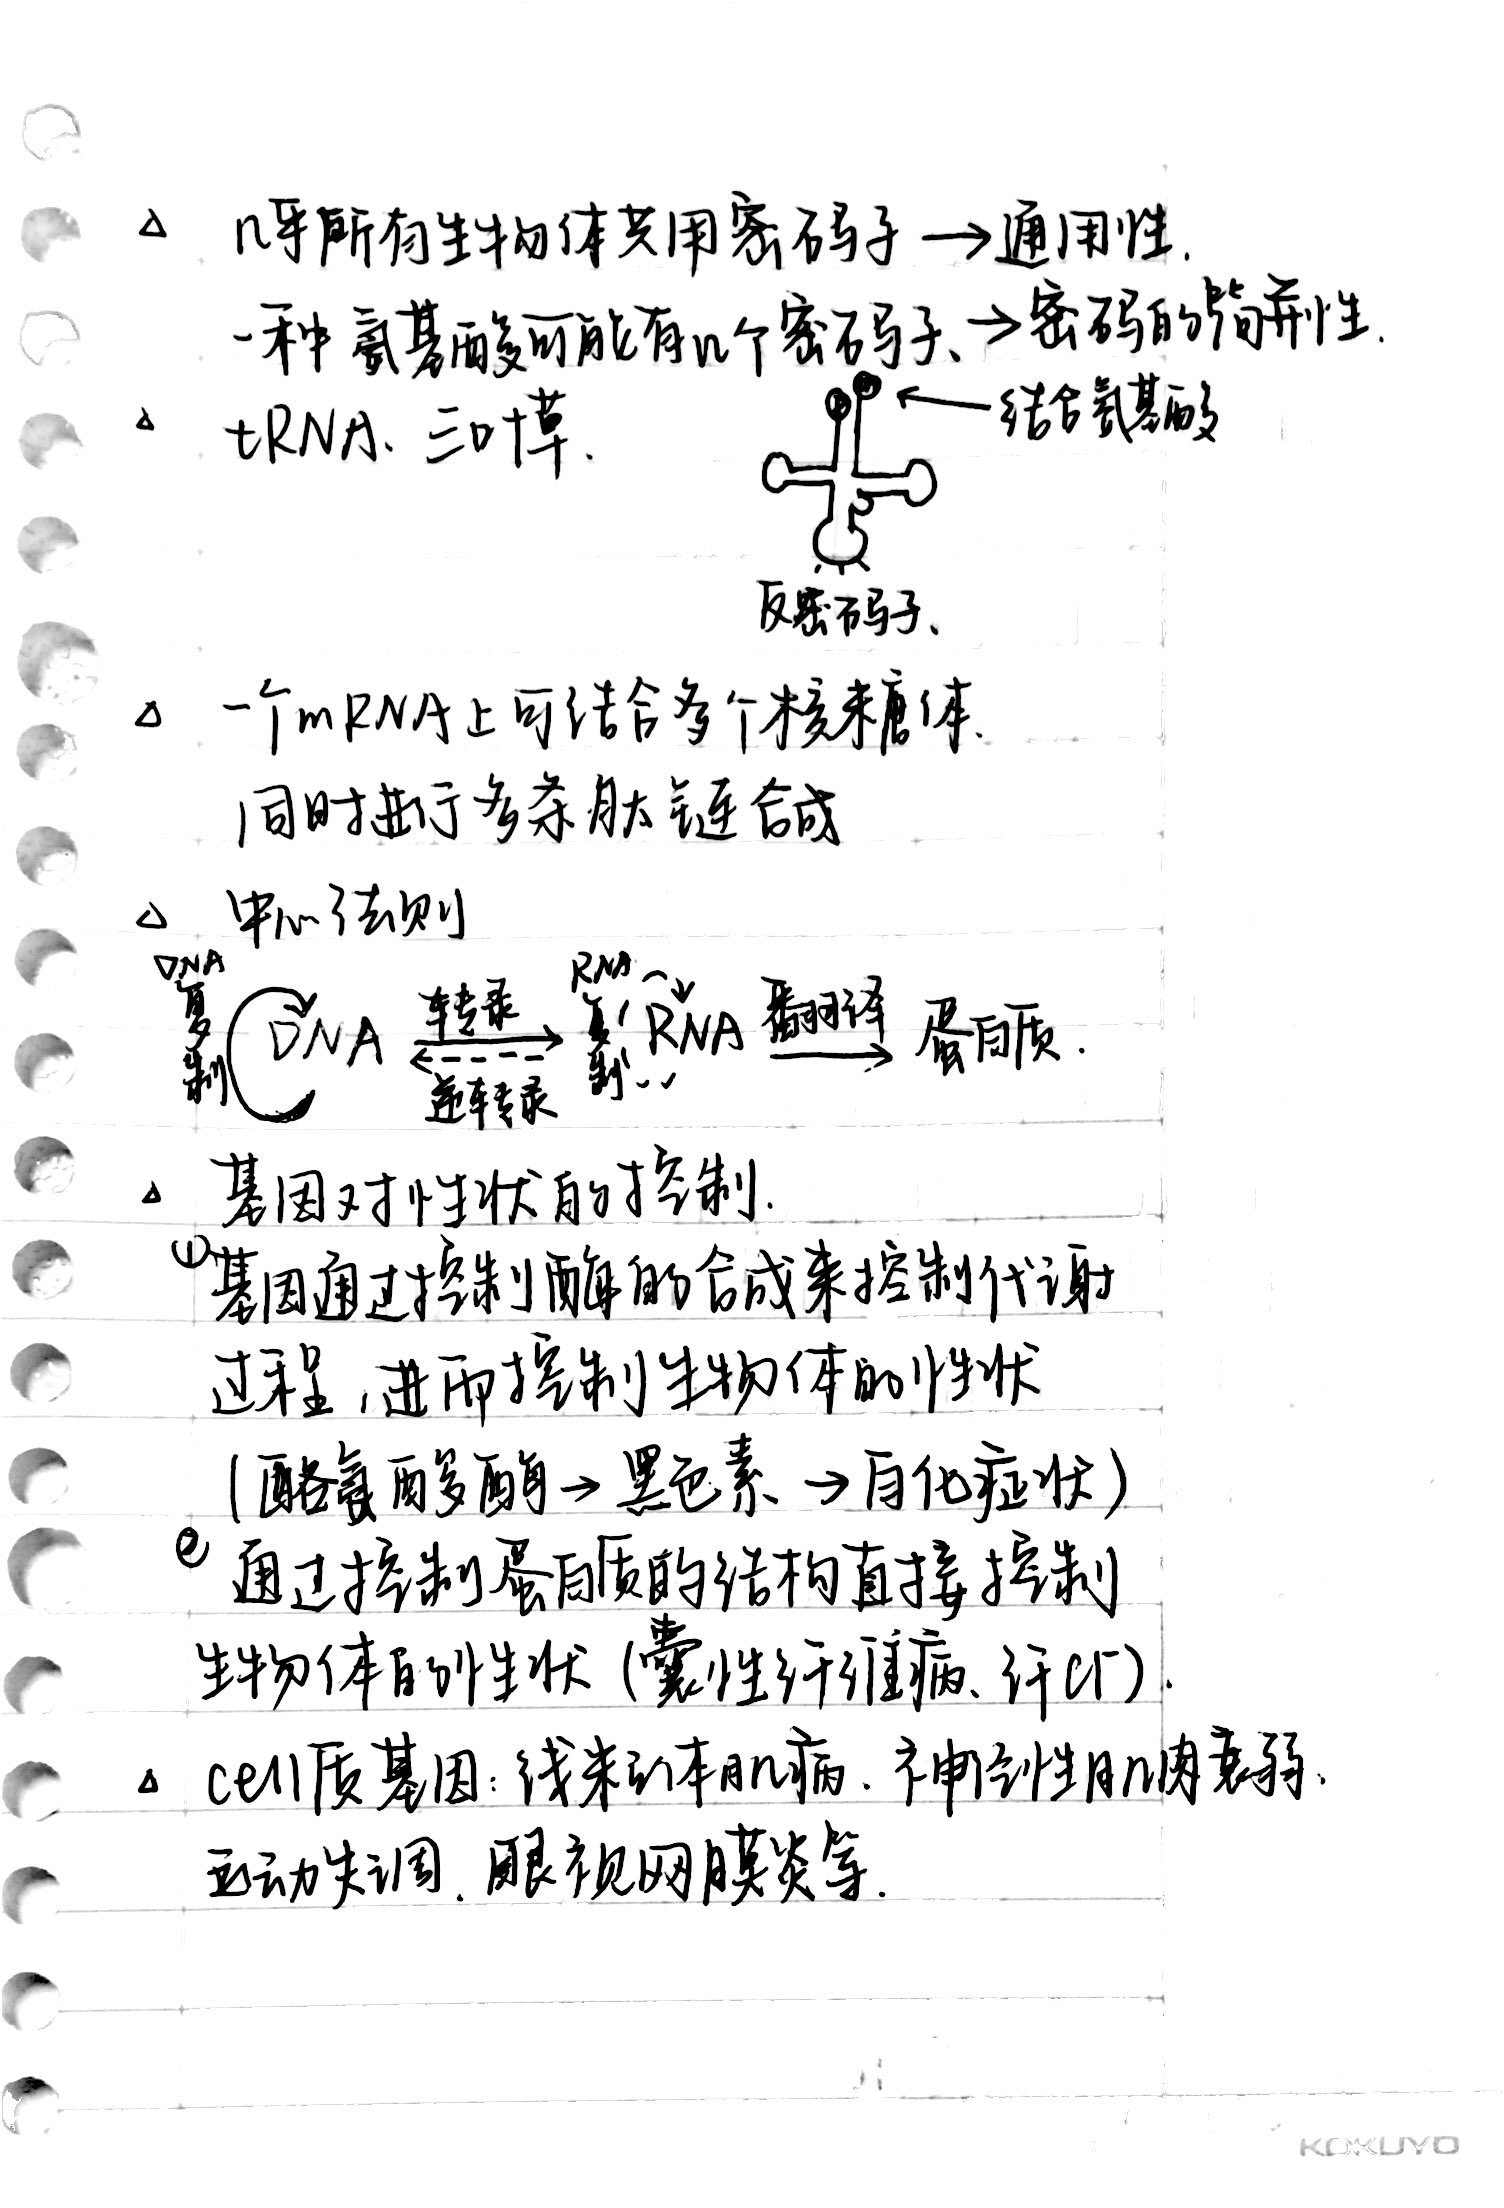 △ 几乎所有生物体共用密码子 → 通用性.
一种氨基酸可能有几个密码子、→ 密码的简并性.
△ tRNA、三叶草.
结合氨基酸
反密码子、
△ 一个mRNA上可结合多个核糖体.
同时进行多条肽链合成
△ 中心法则
DNA复制 DNA 转录 逆转录 RNA复制 RNA 翻译 蛋白质.
△ 基因对性状的控制.
①基因通过控制酶的合成来控制代谢
过程,进而控制生物体的性状
(酪氨酸酶→黑色素→白化症状)
② 通过控制蛋白质的结构直接控制
生物体的性状(囊性纤维病、汗Cl⁻).
△ cell质基因:线粒体肌病、神经性肌肉衰弱、
运动失调、眼视网膜炎等.
KOKUYO